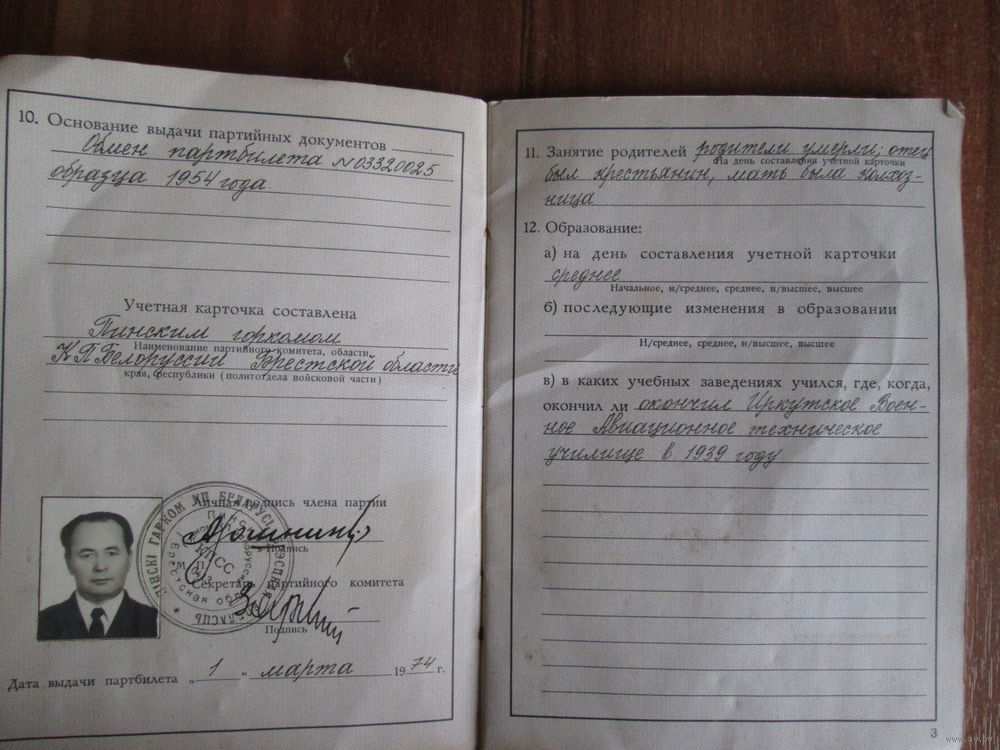 10. Основание выдачи партийных документов
Обмен партбилета №03320025
образца 1954 года.
Учетная карточка составлена
Пинским горкомом
Наименование партийного комитета, области,
КП Белоруссии Брестской области
края, республики (политотдела войсковой части)
Личная подпись члена партии
Подпись
М. П.
Секретарь партийного комитета
Подпись
Дата выдачи партбилета „ 1 " марта 1974 г.
11. Занятие родителей родители умерли; отец
На день составления учетной карточки
был крестьянин, мать была колхоз-
ница
12. Образование:
а) на день составления учетной карточки
среднее
Начальное, н/среднее, среднее, н/высшее, высшее
б) последующие изменения в образовании
Н/среднее, среднее, н/высшее, высшее
в) в каких учебных заведениях учился, где, когда,
окончил ли окончил Иркутское Воен-
ное Авиационное техническое
училище в 1939 году.
3
www.ay.by